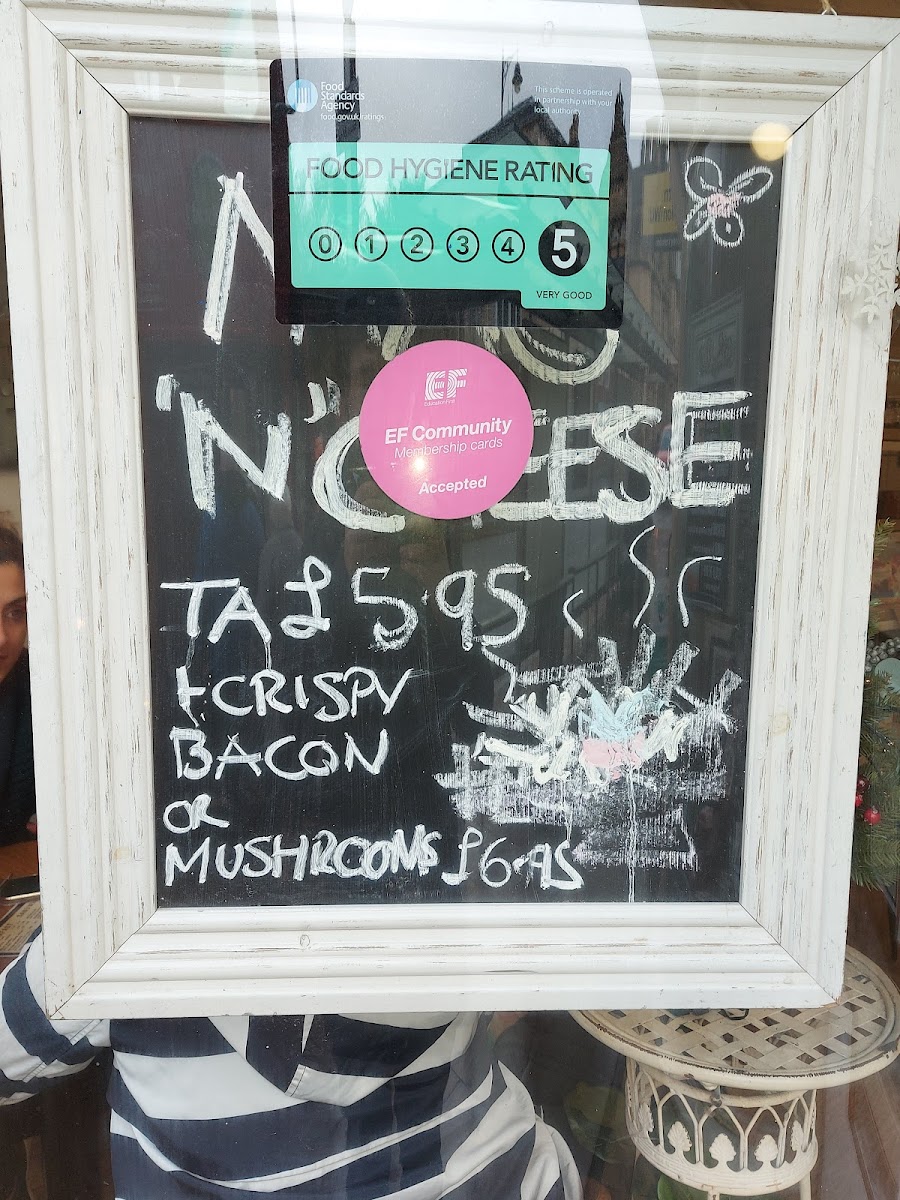 Food
Standards
Agency
food.gov.uk/ratings
This scheme is operated
in partnership with your
local authority
FOOD HYGIENE RATING
0 1 2 3 4 5
VERY GOOD
'N' C EESE
EF
EF Community
Membership cards
Accepted
TA £5.95
+CRISPY
BACON
OR
MUSHROOMS £6.95